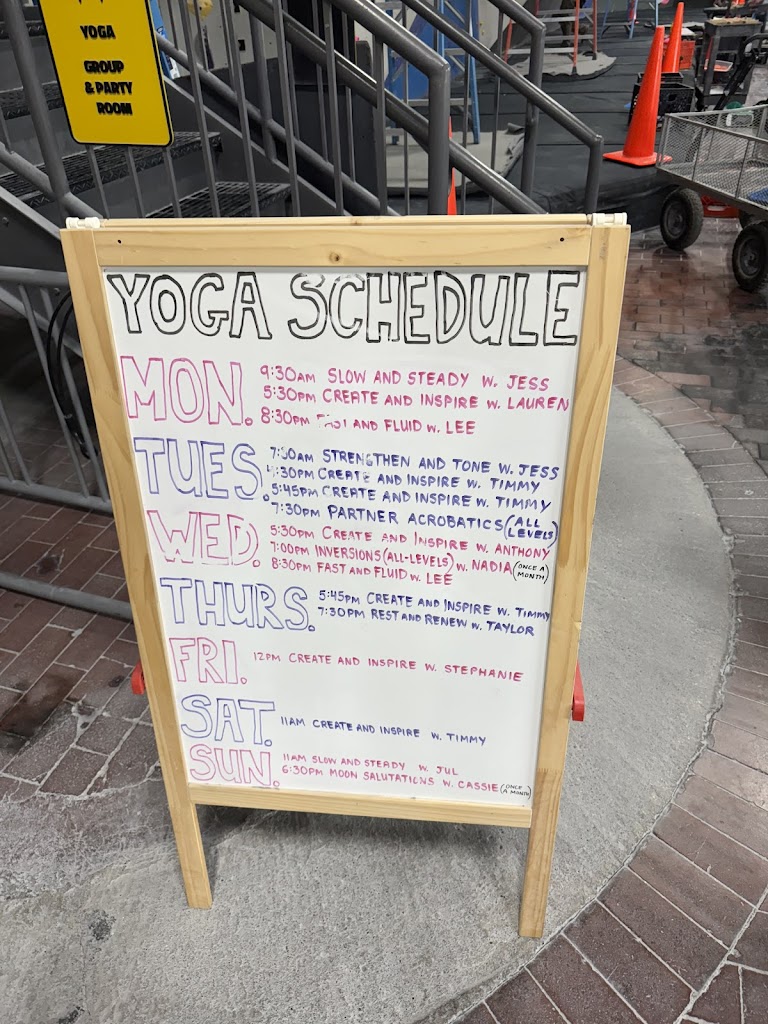 YOGA
GROUP
& PARTY
ROOM
YOGA SCHEDULE
MON.
9:30AM SLOW AND STEADY W. JESS
5:30PM CREATE AND INSPIRE W. LAUREN
8:30PM FAST AND FLUID W. LEE
TUES.
STRENGTHEN AND TONE W. JESS
CREATE AND INSPIRE W. TIMMY
5:45PM CREATE AND INSPIRE W. TIMMY
7:30PM PARTNER ACROBATICS (ALL LEVELS)
WED.
5:30PM CREATE AND INSPIRE W. ANTHONY
7:00PM INVERSIONS (ALL-LEVELS) W. NADIA (ONCE A MONTH)
8:30PM FAST AND FLUID W. LEE
THURS.
5:45PM CREATE AND INSPIRE W. TIMMY
7:30PM REST AND RENEW W. TAYLOR
FRI.
12PM CREATE AND INSPIRE W. STEPHANIE
SAT.
11AM CREATE AND INSPIRE W. TIMMY
SUN.
11AM SLOW AND STEADY W. JUL
6:30PM MOON SALUTATIONS W. CASSIE (ONCE A MONTH)